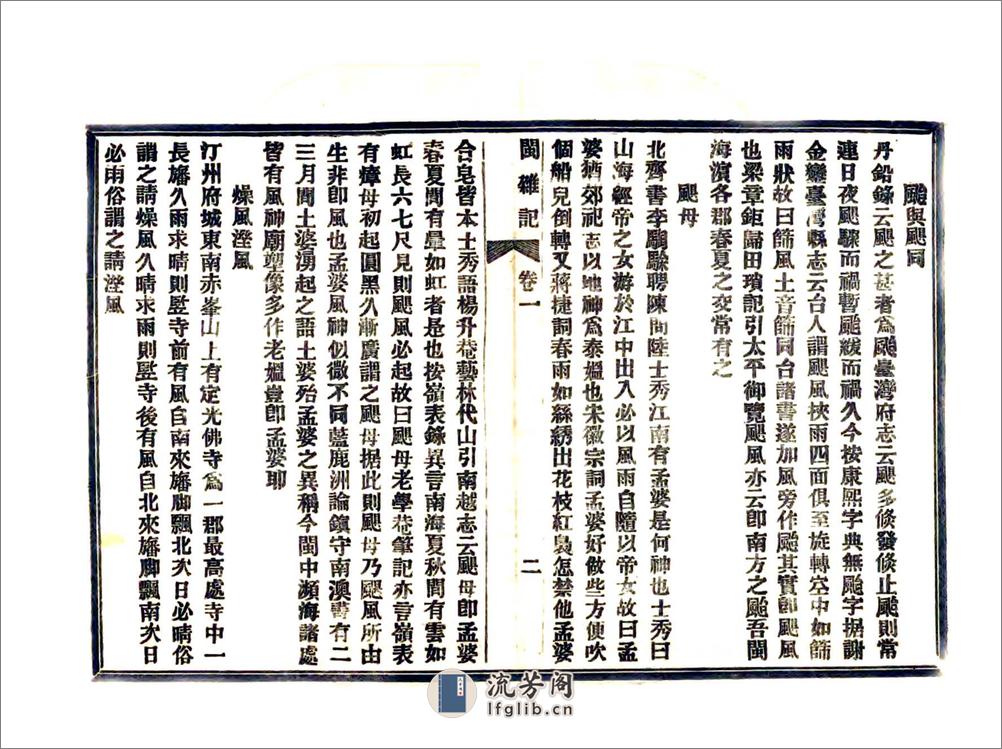 颱與颶同
丹鉛錄云颶之甚者爲颱臺灣府志云颶多倏發倏止颱則常
連日夜颶驟而禍暫颱緩而禍久今按康熙字典無颱字据謝
金鑾臺灣縣志云台人謂颶風挾雨四面俱至旋轉空中如篩
雨狀故曰篩風土音篩同台諸書遂加風旁作颱其實即颶風
也梁章鉅歸田瑣記引太平御覽颶風亦云即南方之颱吾閩
海濱各郡春夏之交常有之
颶母
北齊書李騊駼聘陳問陸士秀江南有孟婆是何神也士秀曰
山海經帝之女游於江中出入必以風雨自隨以帝女故曰孟
婆猶郊祀志以地神爲泰媼也宋徽宗詞孟婆好做些方便吹
個船兒倒轉又蔣捷詞春雨如絲綉出花枝紅裊怎禁他孟婆
閩雜記 卷一 二
合皂皆本士秀語楊升菴藝林代山引南越志云颶母即孟婆
春夏間有暈如虹者是也按嶺表錄異言南海夏秋間有雲如
虹長六七尺見則颶風必起故曰颶母老學菴筆記亦言嶺表
有瘴母初起圓黑久漸廣謂之颶母据此則颶母乃颶風所由
生非即風也孟婆風神似微不同藍鹿洲論鎮守南澳書有二
三月間土婆湧起之語土婆殆孟婆之異稱今閩中瀕海諸處
皆有風神廟塑像多作老媼豈即孟婆耶
燥風溼風
汀州府城東南赤峯山上有定光佛寺爲一郡最高處寺中一
長旛久雨求晴則竪寺前有風自南來旛脚飄北次日必晴俗
謂之請燥風久晴求雨則竪寺後有風自北來旛脚飄南次日
必雨俗謂之請溼風
流芳阁
lfglib.cn